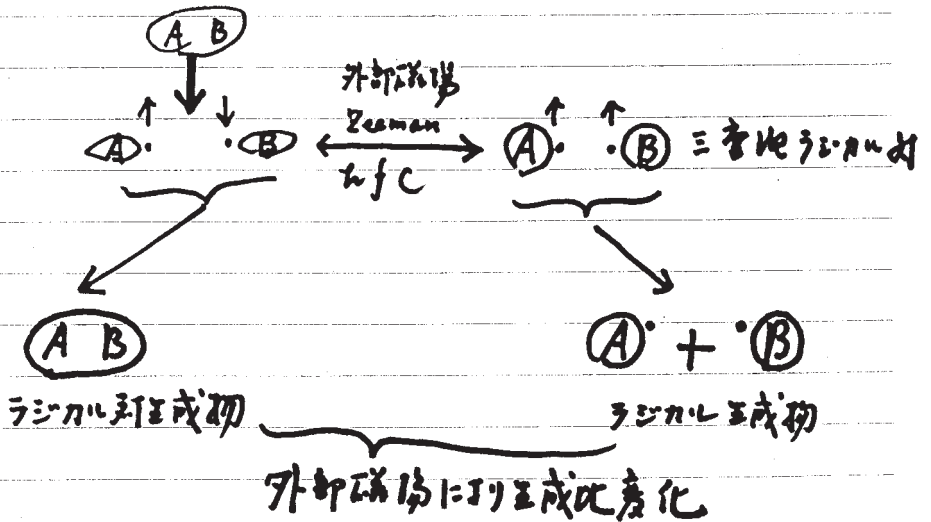 A B
外部磁場
↑ ↓ Zeeman ↑ ↑
A・ ・B hfC A・ ・B 三重項ラジカル対
A B A・ + ・B
ラジカル対生成物 ラジカル生成物
外部磁場により生成比変化